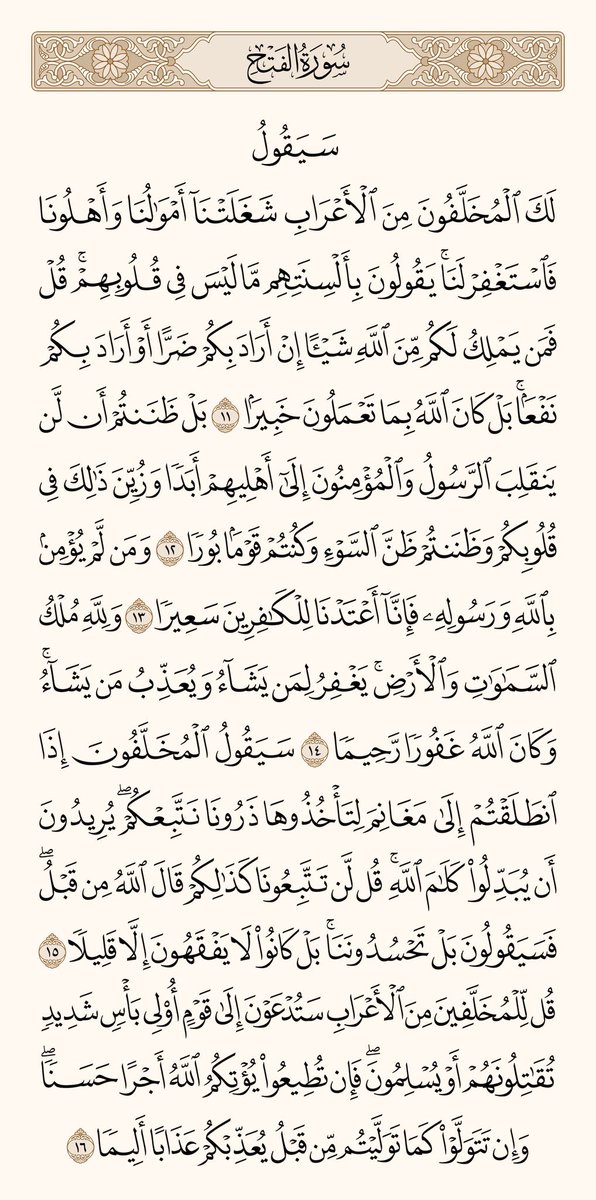 سُورَةُ الفَتۡحِ
سَيَقُولُ
لَكَ ٱلۡمُخَلَّفُونَ مِنَ ٱلۡأَعۡرَابِ شَغَلَتۡنَآ أَمۡوَٰلُنَا وَأَهۡلُونَا
فَٱسۡتَغۡفِرۡ لَنَاۚ يَقُولُونَ بِأَلۡسِنَتِهِم مَّا لَيۡسَ فِي قُلُوبِهِمۡۚ قُلۡ
فَمَن يَمۡلِكُ لَكُم مِّنَ ٱللَّهِ شَيۡـًٔا إِنۡ أَرَادَ بِكُمۡ ضَرًّا أَوۡ أَرَادَ بِكُمۡ
نَفۡعَۢاۚ بَلۡ كَانَ ٱللَّهُ بِمَا تَعۡمَلُونَ خَبِيرَۢا ١١ بَلۡ ظَنَنتُمۡ أَن لَّن
يَنقَلِبَ ٱلرَّسُولُ وَٱلۡمُؤۡمِنُونَ إِلَىٰٓ أَهۡلِيهِمۡ أَبَدٗا وَزُيِّنَ ذَٰلِكَ فِي
قُلُوبِكُمۡ وَظَنَنتُمۡ ظَنَّ ٱلسَّوۡءِ وَكُنتُمۡ قَوۡمَۢا بُورٗا ١٢ وَمَن لَّمۡ يُؤۡمِنۢ
بِٱللَّهِ وَرَسُولِهِۦ فَإِنَّآ أَعۡتَدۡنَا لِلۡكَٰفِرِينَ سَعِيرٗا ١٣ وَلِلَّهِ مُلۡكُ
ٱلسَّمَٰوَٰتِ وَٱلۡأَرۡضِۚ يَغۡفِرُ لِمَن يَشَآءُ وَيُعَذِّبُ مَن يَشَآءُۚ
وَكَانَ ٱللَّهُ غَفُورٗا رَّحِيمٗا ١٤ سَيَقُولُ ٱلۡمُخَلَّفُونَ إِذَا
ٱنطَلَقۡتُمۡ إِلَىٰ مَغَانِمَ لِتَأۡخُذُوهَا ذَرُونَا نَتَّبِعۡكُمۡۖ يُرِيدُونَ
أَن يُبَدِّلُواْ كَلَٰمَ ٱللَّهِۚ قُل لَّن تَتَّبِعُونَا كَذَٰلِكُمۡ قَالَ ٱللَّهُ مِن قَبۡلُۖ
فَسَيَقُولُونَ بَلۡ تَحۡسُدُونَنَاۚ بَلۡ كَانُواْ لَا يَفۡقَهُونَ إِلَّا قَلِيلٗا ١٥
قُل لِّلۡمُخَلَّفِينَ مِنَ ٱلۡأَعۡرَابِ سَتُدۡعَوۡنَ إِلَىٰ قَوۡمٍ أُوْلِي بَأۡسٖ شَدِيدٖ
تُقَٰتِلُونَهُمۡ أَوۡ يُسۡلِمُونَۖ فَإِن تُطِيعُواْ يُؤۡتِكُمُ ٱللَّهُ أَجۡرًا حَسَنٗاۖ
وَإِن تَتَوَلَّوۡاْ كَمَا تَوَلَّيۡتُم مِّن قَبۡلُ يُعَذِّبۡكُمۡ عَذَابًا أَلِيمٗا ١٦